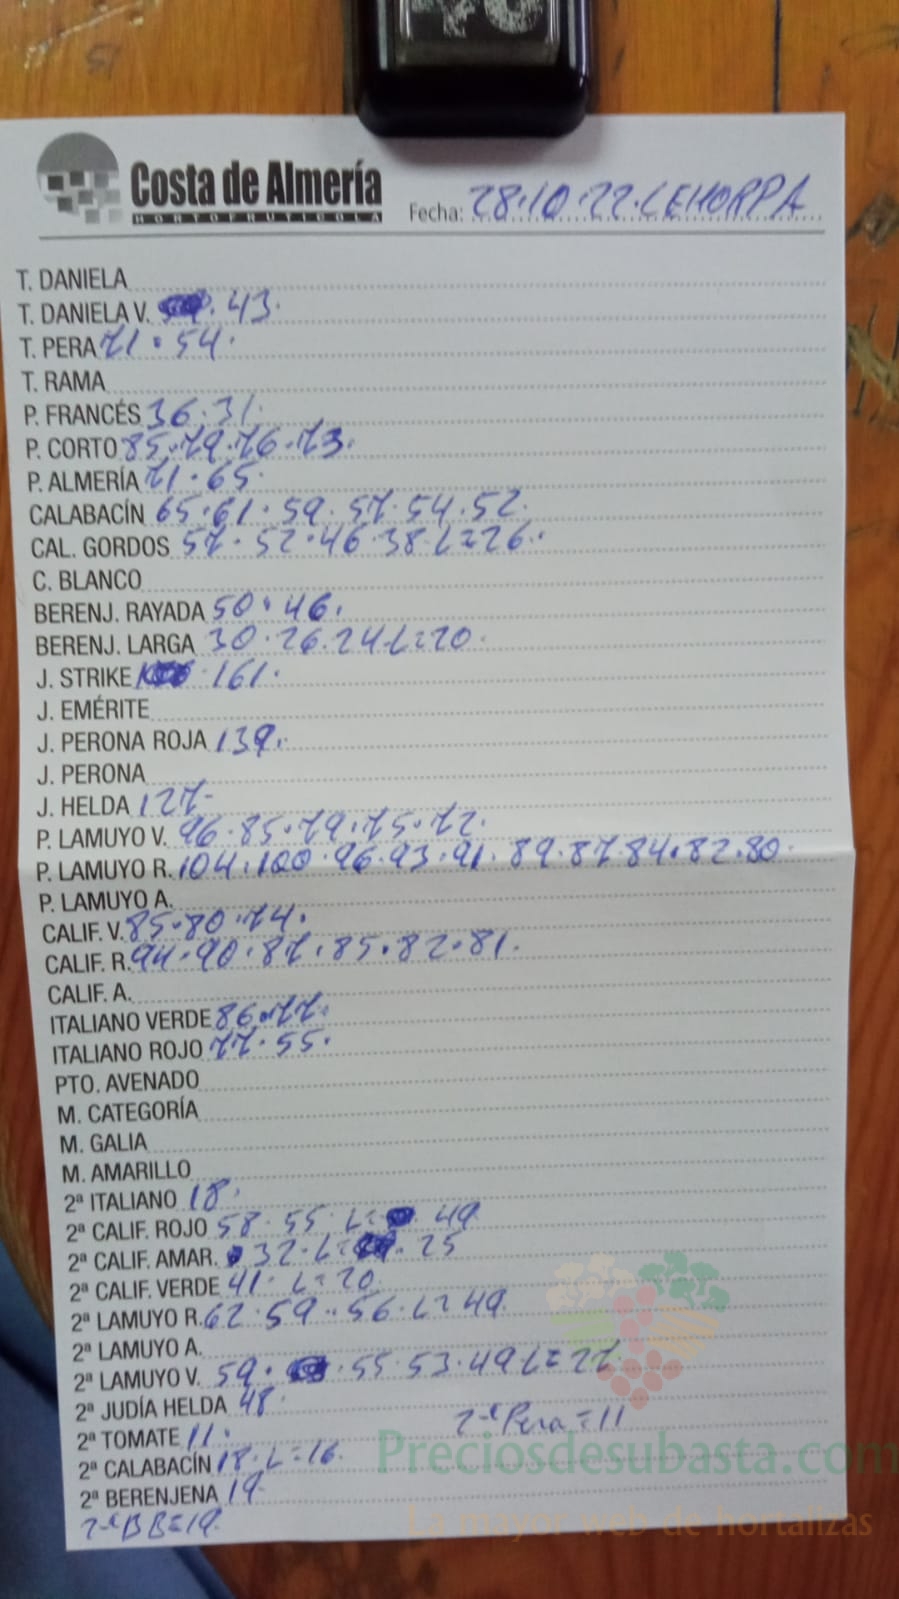 Costa de Almería
HORTOFRUTICOLA
Fecha: 28·10·22·CEHORPA
T. DANIELA
T. DANIELA V. 43·
T. PERA 71·54·
T. RAMA
P. FRANCÉS 36·31·
P. CORTO 85·79·76·73·
P. ALMERÍA 71·65·
CALABACÍN 65·61·59·57·54·52·
CAL. GORDOS 57·52·46·38·L=26·
C. BLANCO
BERENJ. RAYADA 50·46·
BERENJ. LARGA 30·26·24·L=20·
J. STRIKE 161·
J. EMÉRITE
J. PERONA ROJA 139·
J. PERONA
J. HELDA 127-
P. LAMUYO V. 96·85·79·75·72·
P. LAMUYO R. 104·100·96·93·91·89·87·84·82·80·
P. LAMUYO A.
CALIF. V. 85·80·74·
CALIF. R. 94·90·87·85·82·81·
CALIF. A.
ITALIANO VERDE 86·77·
ITALIANO ROJO 77·55·
PTO. AVENADO
M. CATEGORÍA
M. GALIA
M. AMARILLO
2ª ITALIANO 18·
2ª CALIF. ROJO 58·55·L= 49
2ª CALIF. AMAR. 32·L= 25
2ª CALIF. VERDE 41·L=20
2ª LAMUYO R. 62·59·56·L=49
2ª LAMUYO A.
2ª LAMUYO V. 59· ·55·53·49 L=27
2ª JUDÍA HELDA 48·
2ª Pera=11
2ª TOMATE 11·
2ª CALABACÍN 18·L=16·
2ª BERENJENA 19·
2ª BB=19·
Preciosdesubasta.com
La mayor web de hortalizas